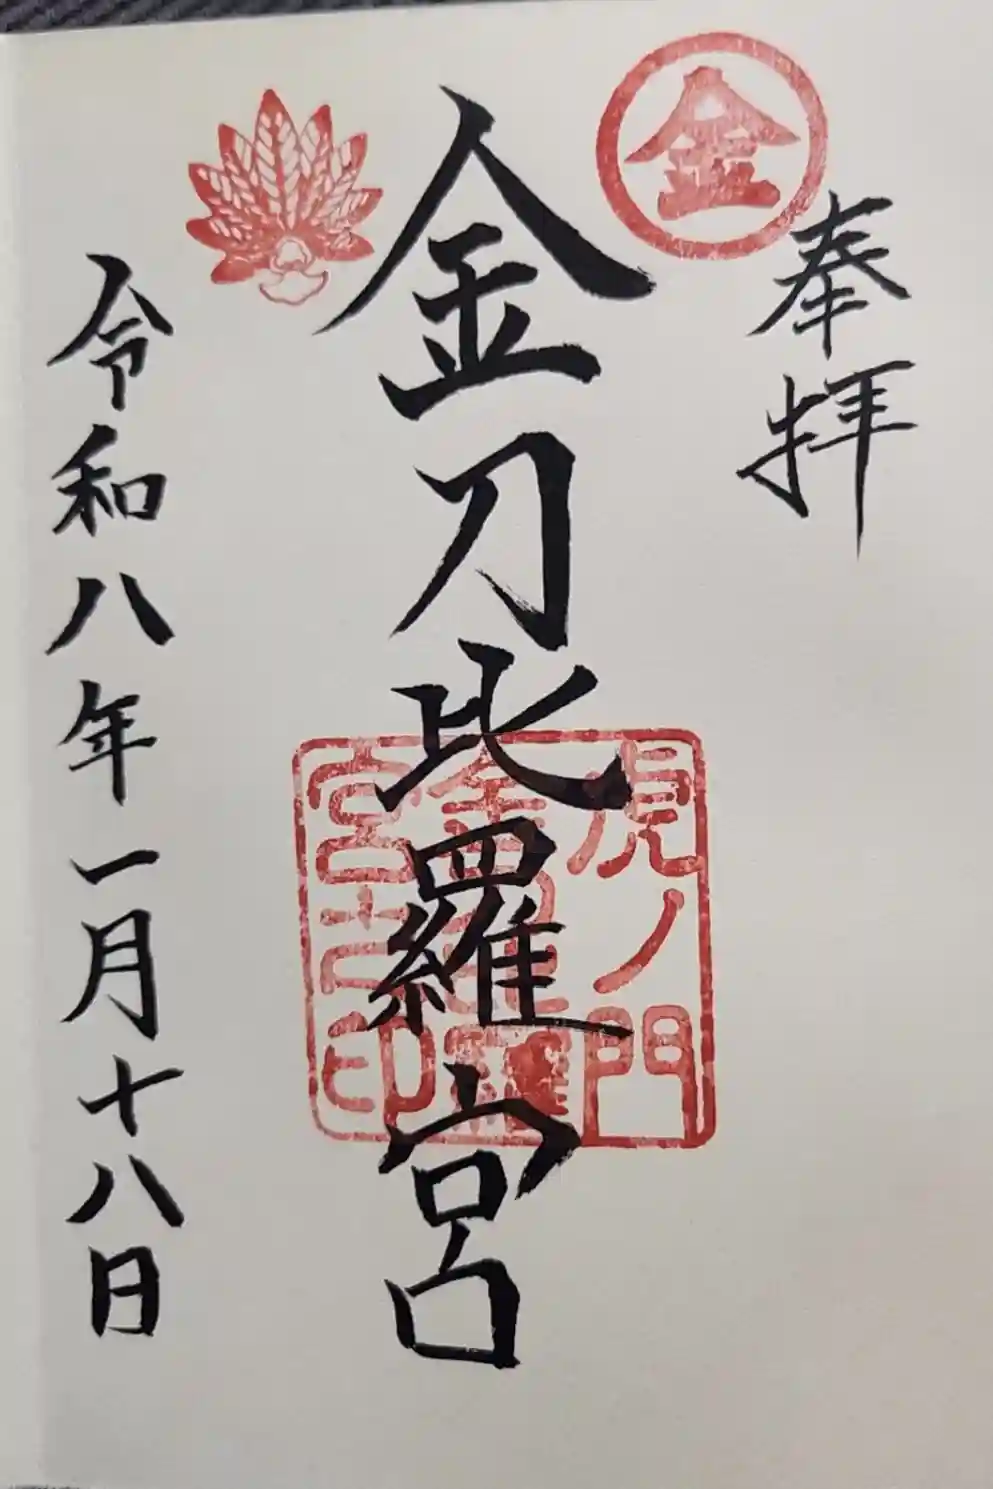 金
奉拝
金刀比羅宮
虎ノ門
金刀比羅
宮之印
令和八年一月十八日